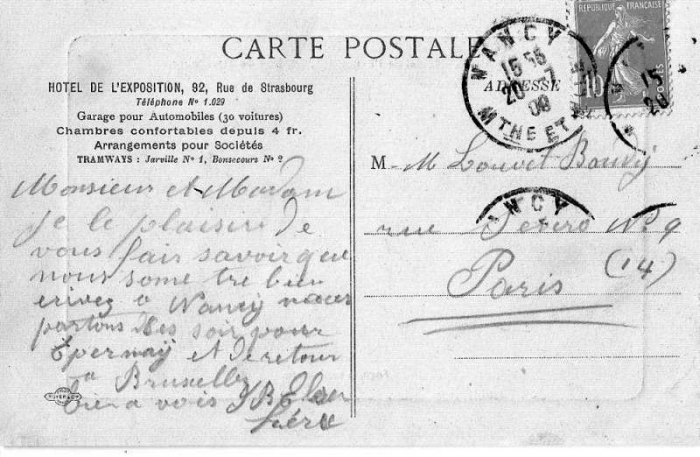 CARTE POSTALE
HOTEL DE L'EXPOSITION, 92, Rue de Strasbourg
Téléphone Nº 1.029
Garage pour Automobiles (30 voitures)
Chambres confortables depuis 4 fr.
Arrangements pour Sociétés
TRAMWAYS : Jarville Nº 1, Bonsecours Nº 2
Monsieur et Madam
je le plaisir de
vous fair savoir que
nous some tre bien
erivez a Nancy nous
partons ses soir pour
Epernay et de retour
a Bruxelles
bien a vois
ADRESSE
M - M Louvet
rue Nº 9
Paris (14)
NANCY
15 35
20 -7
09
MTHE ET M
REPUBLIQUE FRANÇAISE
10
POSTES
15
20
NANCY